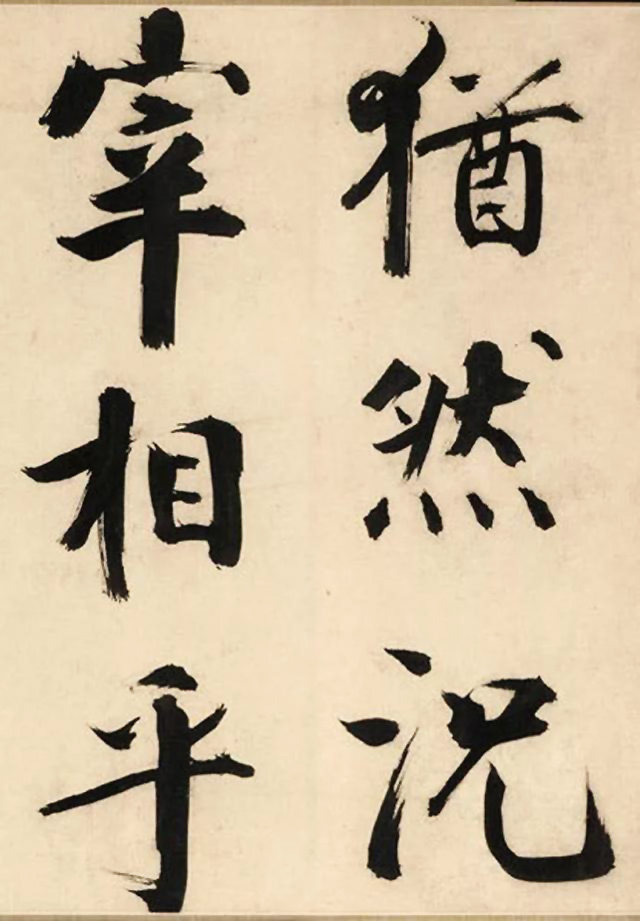 猶然況
宰相乎